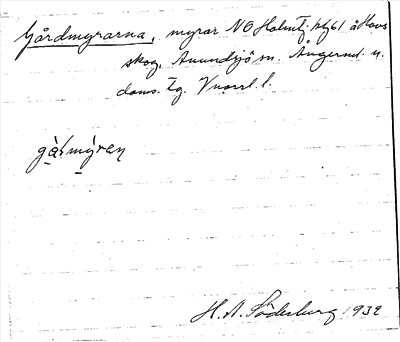 Gårdmyrarna, myrar NO Holmtj. pkt 61 å Havs
skog, Anundsjö sn. Ångerml. n.
doms. tg. Vnorrl. l.
gạ̊ḷmýren
H. A. Söderberg 1932